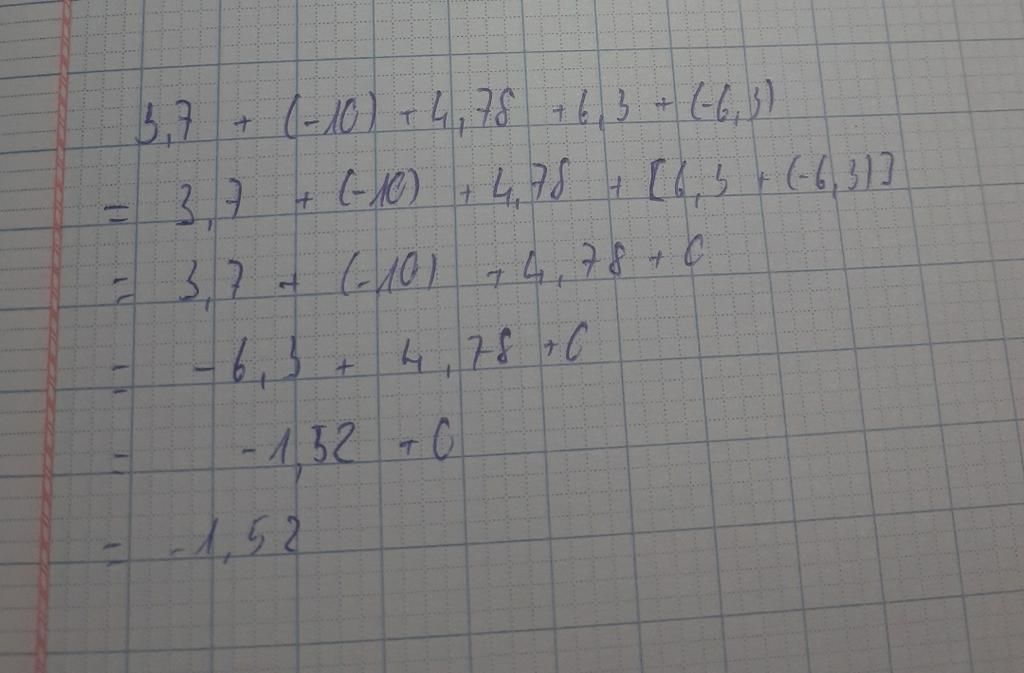 3,7 + (-10) + 4,78 + 6,3 + (-6,3)
= 3,7 + (-10) + 4,78 + [6,3 + (-6,3)]
= 3,7 + (-10) + 4,78 + 0
= -6,3 + 4,78 + 0
= -1,52 + 0
= -1,52